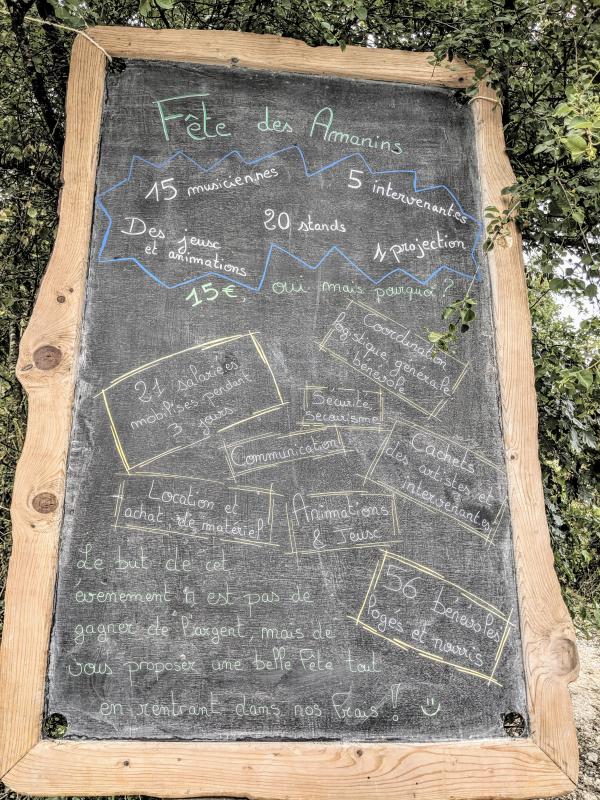 Fête des Amanins
15 musicien.nes
5 intervenantes
20 stands
Des jeux
et animations
1 projection
15€, oui mais pourquoi?
Coordination
logistique, générale
bénévole
21 salarié.es
mobilisés pendant
3 jours.
Sécurité,
Secourisme
Communication
Cachets
des artistes et
intervenantes
Location et
achat de matériel
Animations
& Jeux
56 bénévoles
logés et nourris
Le but de cet
évenement n'est pas de
gagner de l'argent, mais de
vous proposer une belle Fête tout
en rentrant dans nos frais!